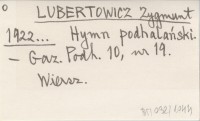 LUBERTOWICZ Zygmunt
1922... Hymn podhalański.
– Gaz. Podh. 10, nr 19.
Wiersz.